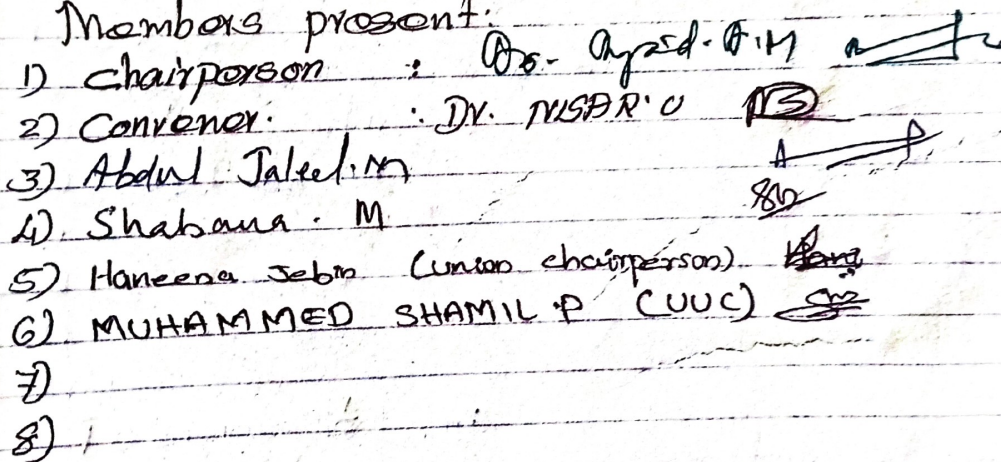 Members present:
1) Chairperson : Dr. Ayaid. A.M
2) Convener. : Dr. NISAR.U
3) Abdul Jaleel.M
4). Shabana. M
5) Haneena Jebin (union chairperson)
6) MUHAMMED SHAMIL.P (UUC)
7)
8)